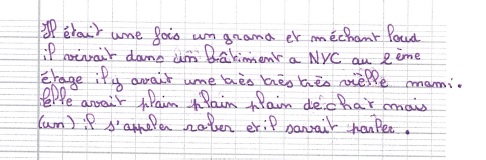 Il était une fois un grand et méchant loud
il vivait dans un bâtiment a NYC au 2 ème
étage il y avait une très très très vielle mami.
Elle avait plain plain plain de chat mais
(um) il s'appeler rober et il savait parler.